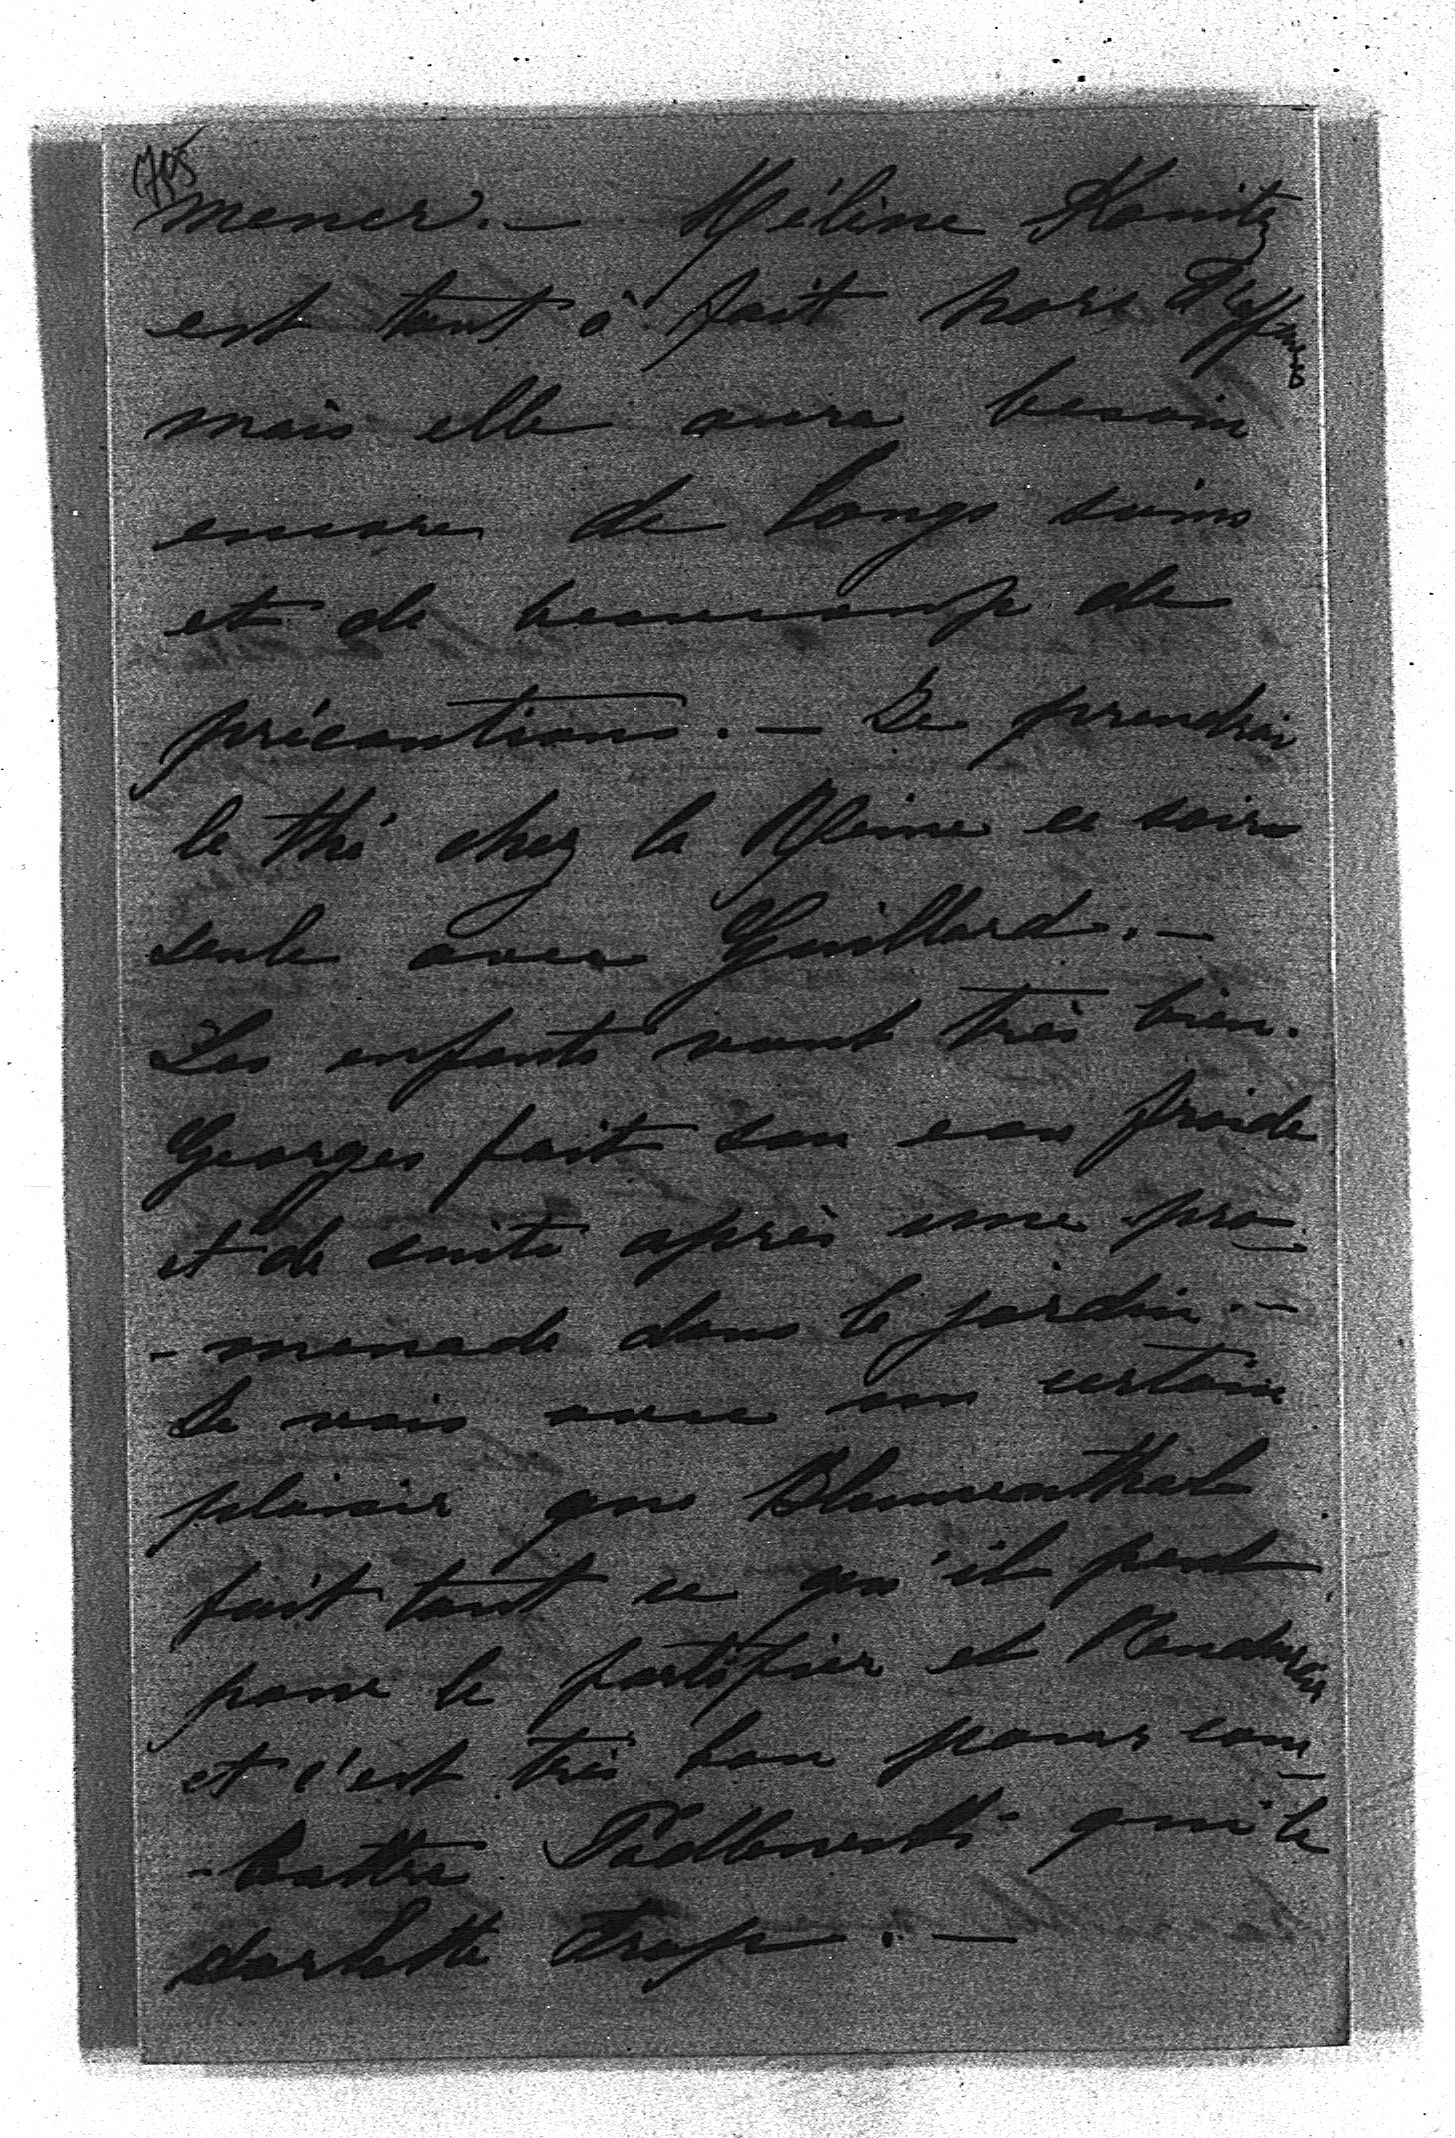 705
mener. — Hélène Kanitz
est tout à fait hors d'affaires
mais elle aura besoin
encore de longs soins
et de beaucoup de
précautions. — Je prendrai
le thé chez la Reine ce soir
seule avec Guillard. —
Les enfants vont très bien.
Georges fait son eau froide
et de suite après une pro-
-menade dans le jardin. —
Je vois avec un certain
plaisir que Blumenthal
fait tout ce qu'il peut
pour le fortifier et l'endurcir
et c'est très bon pour com-
-battre qui le
dorlotte trop. —